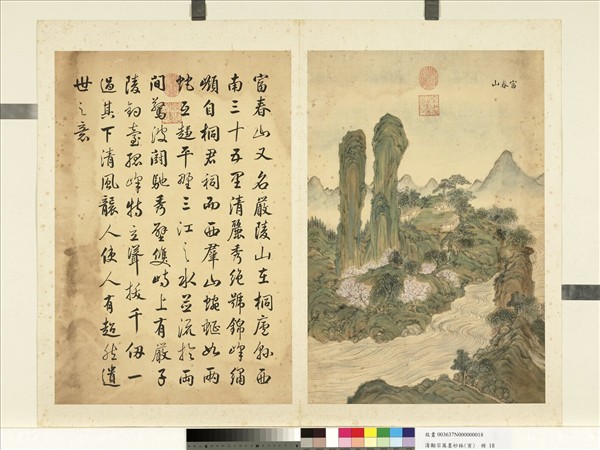 富春山又名嚴陵山在桐廬縣西
南三十五里清麗秀絕號錦峰繡
嶺自桐君祠而西羣山蜿蜒如兩
蛇互趨平野三江之水並流於兩
間驚波闘馳秀壁雙峙上有嚴子
陵釣臺孤峰特立聳拔千仞一
過其下清風襲人使人有超然遺
世之意
富春山
故畫 003637N000000018
冊 18